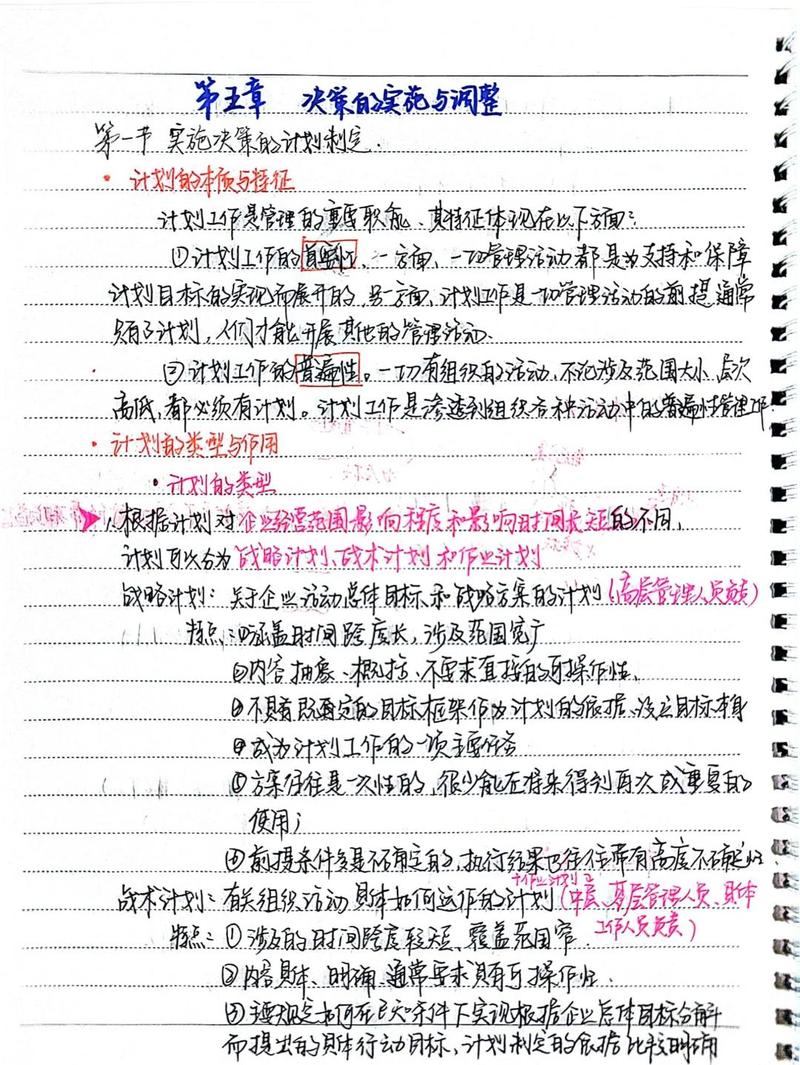 第五章 决策的实施与调整
第一节 实施决策的计划制定.
· 计划的本质与特征
计划工作是管理的重要职能、其特征体现在以下方面:
①计划工作的首要性、一方面,一切管理活动都是为支持和保障
计划目标的实现而展开的,另一方面,计划工作是一切管理活动的前提通常
只有了计划,人们才能开展其他的管理活动.
②计划工作的普遍性。一切有组织的活动、不论涉及范围大小、层次
高低,都必须有计划。计划工作是渗透到组织各种活动中的普遍性管理工作
· 计划的类型与作用
· 计划的类型
1.根据计划对企业经营范围影响程度和影响时间长短的不同,
计划可以分为战略计划、战术计划和作业计划
战略计划:关于企业活动总体目标和战略方案的计划(高层管理人员负责)
特点:①涵盖时间跨度长,涉及范围宽广
②内容抽象、概括、不要求直接的可操作性,
③不具有既定的目标框架作为计划的依据、设立目标本身
④成为计划工作的一项主要任务
⑤方案往往是一次性的,很少能在将来得到再次或重复的
使用;
⑥前提条件多是不确定的,执行结果也往往带有高度不确定性.
+作业计划
战术计划:有关组织活动具体如何运作的计划(中层、基层管理人员、具体
工作人员负责)
特点:①涉及的时间跨度较短、覆盖范围窄
②内容具体、明确、通常要求具有可操作性.
③主要规定如何在已知条件下实现根据企业总体目标分解
而提出的具体行动目标,计划制定的依据比较明确